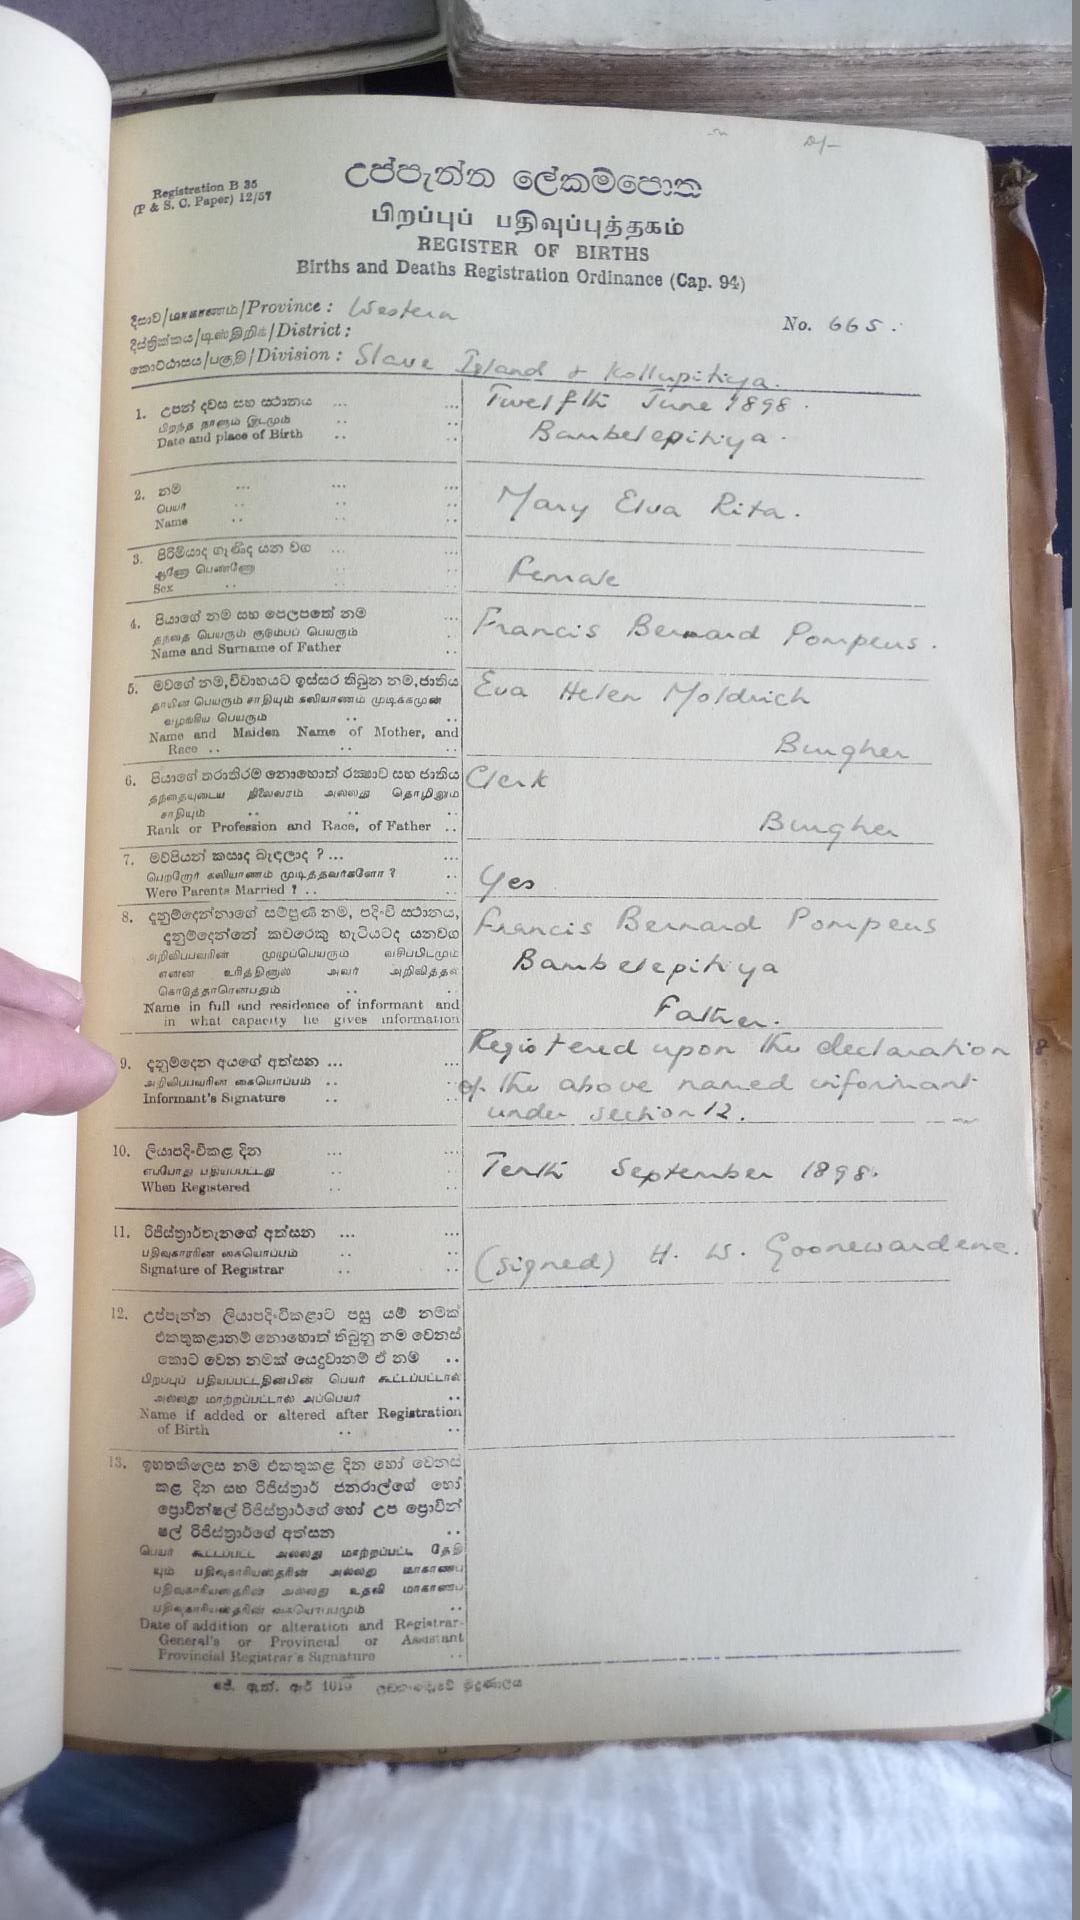 2/-
Registration B 35
(P & S. C. Paper) 12/57
උප්පැන්න ලේකම්පොත
பிறப்புப் பதிவுப்புத்தகம்
REGISTER OF BIRTHS
Births and Deaths Registration Ordinance (Cap. 94)
දිසාව/மாகாணம்/Province : Western
No. 665.
දිස්ත්‍රික්කය/டிஸ்திறிக்/District :
කොට්ඨාසය/பகுதி/Division : Slave Island & Kollupitiya.
1. උපන් දවස සහ ස්ථානය ... ... Twelfth June 1898.
பிறந்த நாளும் இடமும் .. ..
Date and place of Birth .. .. Bambelepitiya.
2. නම ... ... ...
பெயர் .. .. .. Mary Elva Rita.
Name .. .. ..
3. පිරිමියාද ගැණිද යන වග ... ...
ஆணோ பெண்ணோ .. .. Female
Sex .. .. ..
4. පියාගේ නම සහ පෙලපතේ නම ...
தந்தை பெயரும் குடும்பப் பெயரும் . Francis Bernard Pompeus.
Name and Surname of Father ..
5. මවගේ නම,විවාහයට ඉස්සර තිබුන නම,ජාතිය Eva Helen Moldrich
தாயின் பெயரும் சாதியும் கலியாணம் முடிக்கமுன்
வழங்கிய பெயரும் .. ..
Name and Maiden Name of Mother, and Burgher
Race .. .. ..
6. පියාගේ තරාතිරම නොහොත් රක්ෂාව සහ ජාතිය Clerk
தந்தையுடைய நிலைவரம் அல்லது தொழிலும்
சாதியும் .. .. ..
Rank or Profession and Race, of Father .. Burgher
7. මව්පියන් කසාද බැඳලාද ? ... ...
பெற்றோர் கலியாணம் முடித்தவர்களோ ? .. Yes
Were Parents Married ? .. ..
8. දැනුම්දෙන්නාගේ සම්පූර්ණ නම, පදිංචි ස්ථානය, Francis Bernard Pompeus
දැනුම්දෙන්නේ කවරෙකු හැටියටද යනවග
அறிவிப்பவரின் முழுப்பெயரும் வசிப்பிடமும் Bambelepitiya
என்ன உரித்தினால் அவர் அறிவித்தல்
கொடுத்தாரென்பதும் .. ..
Name in full and residence of informant and Father.
in what capacity he gives information
9. දැනුම්දෙන අයගේ අත්සන ... ... Registered upon the declaration
அறிவிப்பவரின் கையொப்பம் .. .. of the above named informant
Informant's Signature .. .. under section 12.
10. ලියාපදිංචිකළ දින ... ...
எப்போது பதியப்பட்டது .. .. Tenth September 1898.
When Registered .. ..
11. රිජිස්ත්‍රාර්තැනගේ අත්සන ... ...
பதிவுகாரரின் கையொப்பம் .. .. (signed) H. W. Goonewardene.
Signature of Registrar .. ..
12. උප්පැන්න ලියාපදිංචිකළාට පසු යම් නමක්
එකතුකළානම් නොහොත් තිබුනු නම වෙනස්
කොට වෙන නමක් යෙදුවානම් ඒ නම ..
பிறப்புப் பதியப்பட்டதின்பின் பெயர் கூட்டப்பட்டால்
அல்லது மாற்றப்பட்டால் அப்பெயர் ..
Name if added or altered after Registration
of Birth .. ..
13. ඉහතකීලෙස නම එකතුකළ දින හෝ වෙනස්
කළ දින සහ රිජිස්ත්‍රාර් ජනරාල්ගේ හෝ
ප්‍රොවින්ෂල් රිජිස්ත්‍රාර්ගේ හෝ උප ප්‍රොවින්
ෂල් රිජිස්ත්‍රාර්ගේ අත්සන ..
பெயர் கூட்டப்பட்ட அல்லது மாற்றப்பட்ட தேதி
யும் பதிவுகாரியஸ்தரின் அல்லது மாகாணப்
பதிவுகாரியஸ்தரின் அல்லது உதவி மாகாணப்
பதிவுகாரியஸ்தரின் கையொப்பமும் ..
Date of addition or alteration and Registrar-
General's or Provincial or Assistant
Provincial Registrar's Signature ..
ජේ. ඇන්. ආර්